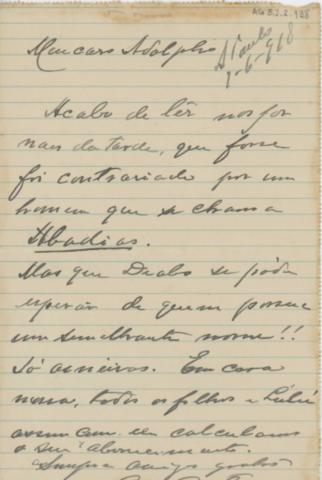 AG 8.1.2.128
S. Paulo
9-6-918
Meu caro Adolpho
Acabo de lêr nos jor
naes da tarde, que
foi contrariado por um
homem que se chama
Abadias.
Mas que Diabo se póde
esperar de quem possue
um semelhante nome!!
Só asneiras. Em casa
nossa, todos os filhos e Lulú
calculamos
o seu aborrecimento.
Sempre amigo grato